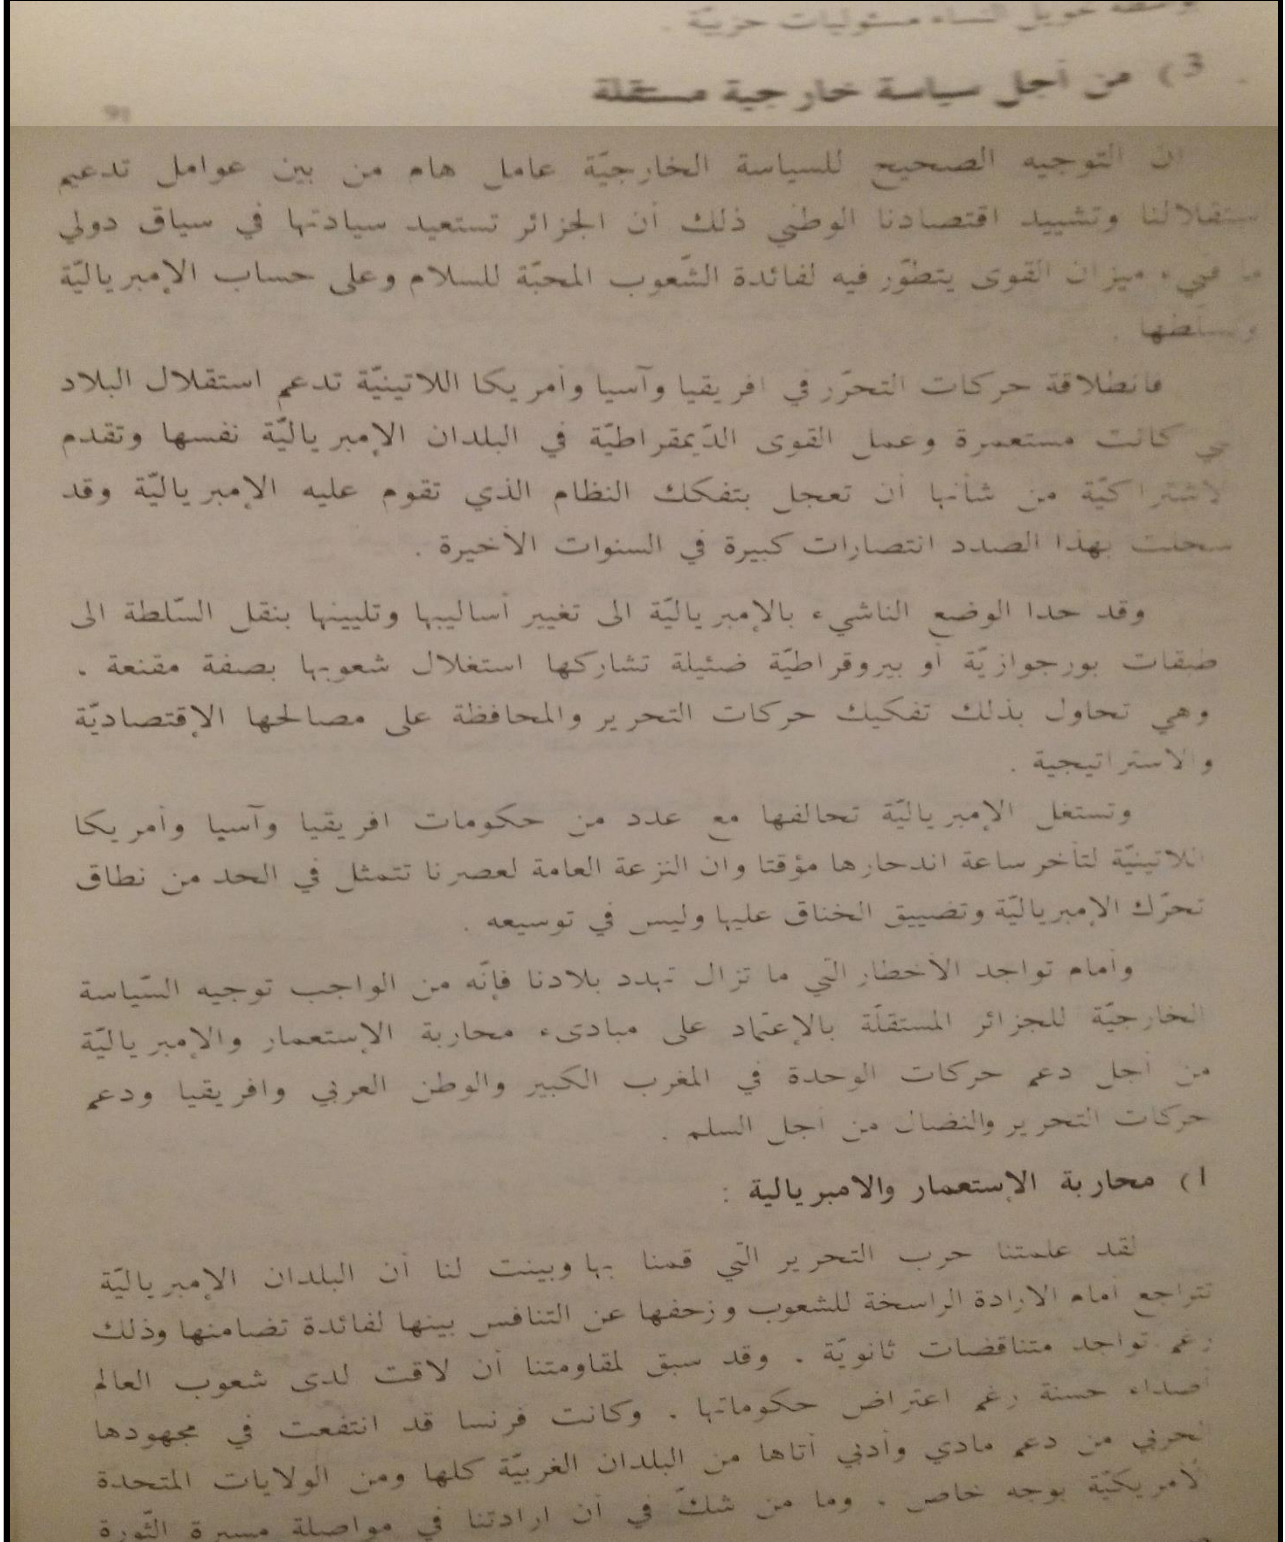 تحويل النساء مسئوليات حزبيّة .
3) من أجل سياسة خارجية مستقلة
ان التوجيه الصحيح للسياسة الخارجيّة عامل هام من بين عوامل تدعيم
ستقلالنا وتشييد اقتصادنا الوطني ذلك أن الجزائر تستعيد سيادتها في سياق دولي
ميزان القوى يتطوّر فيه لفائدة الشّعوب المحبّة للسلام وعلى حساب الإمبرياليّة
وتسلّطها .
فانطلاقة حركات التحرّر في افريقيا وآسيا وأمريكا اللاتينيّة تدعم استقلال البلاد
كانت مستعمرة وعمل القوى الدّيمقراطيّة في البلدان الإمبرياليّة نفسها وتقدم
لاشتراكيّة من شأنها أن تعجل بتفكك النظام الذي تقوم عليه الإمبرياليّة وقد
سجلت بهذا الصدد انتصارات كبيرة في السنوات الأخيرة .
وقد حدا الوضع الناشيء بالإمبرياليّة الى تغيير أساليبها وتليينها بنقل السّلطة الى
طبقات بورجوازيّة أو بيروقراطيّة ضئيلة تشاركها استغلال شعوبها بصفة مقنعة .
وهي تحاول بذلك تفكيك حركات التحرير والمحافظة على مصالحها الإقتصاديّة
والاستراتيجية .
وتستغل الإمبرياليّة تحالفها مع عدد من حكومات افريقيا وآسيا وأمريكا
اللاتينيّة لتأخر ساعة اندحارها مؤقتا وان النزعة العامة لعصرنا تتمثل في الحد من نطاق
تحرّك الإمبرياليّة وتضييق الخناق عليها وليس في توسيعه .
وأمام تواجد الأخطار التّي ما تزال تهدد بلادنا فإنّه من الواجب توجيه السّياسة
الخارجيّة للجزائر المستقلّة بالإعتماد على مبادىء محاربة الإستعمار والإمبرياليّة
من أجل دعم حركات الوحدة في المغرب الكبير والوطن العربي وافريقيا ودعم
حركات التحرير والنضال من أجل السلم .
ا) محاربة الإستعمار والامبريالية :
لقد علمتنا حرب التحرير التّي قمنا بها وبينت لنا أن البلدان الإمبرياليّة
تتراجع أمام الارادة الراسخة للشعوب وزحفها عن التنافس بينها لفائدة تضامنها وذلك
رغم تواجد متناقضات ثانويّة . وقد سبق لمقاومتنا أن لاقت لدى شعوب العالم
أصداء حسنة رغم اعتراض حكوماتها . وكانت فرنسا قد انتفعت في مجهودها
لحربي من دعم مادي وأدبي أتاها من البلدان الغربيّة كلها ومن الولايات المتحدة
لأمريكيّة بوجه خاص . وما من شكّ في أن ارادتنا في مواصلة مسيرة الثّورة